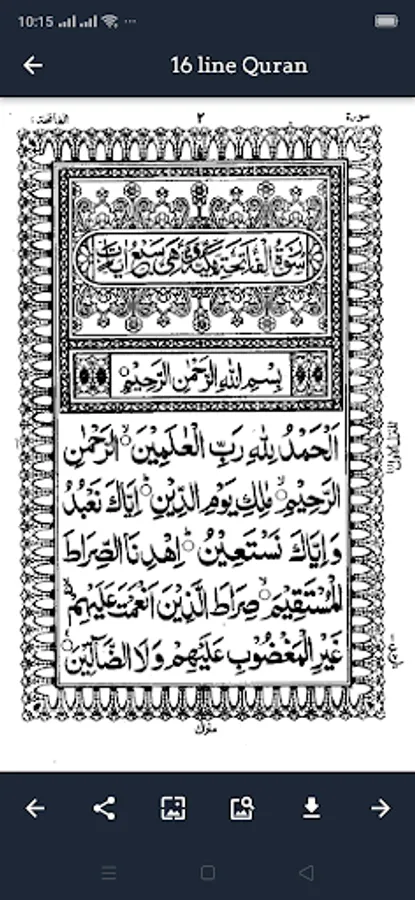 10:15
16 line Quran
سورة ٢ الفاتحة ١
سُوْرَةُ الْفَاتِحَةِ مَكِّيَّةٌ وَّهِيَ سَبْعُ اٰيَاتٍ
بِسْمِ اللهِ الرَّحْمٰنِ الرَّحِيْمِ
اَلْحَمْدُ لِلّٰهِ رَبِّ الْعٰلَمِيْنَ ۙ الرَّحْمٰنِ
الرَّحِيْمِ ۙ مٰلِكِ يَوْمِ الدِّيْنِ ؕ اِيَّاكَ نَعْبُدُ
وَاِيَّاكَ نَسْتَعِيْنُ ؕ اِهْدِنَا الصِّرَاطَ
الْمُسْتَقِيْمَ ۙ صِرَاطَ الَّذِيْنَ اَنْعَمْتَ عَلَيْهِمْ ۙ
غَيْرِ الْمَغْضُوْبِ عَلَيْهِمْ وَلَا الضَّآلِّيْنَ
منزل